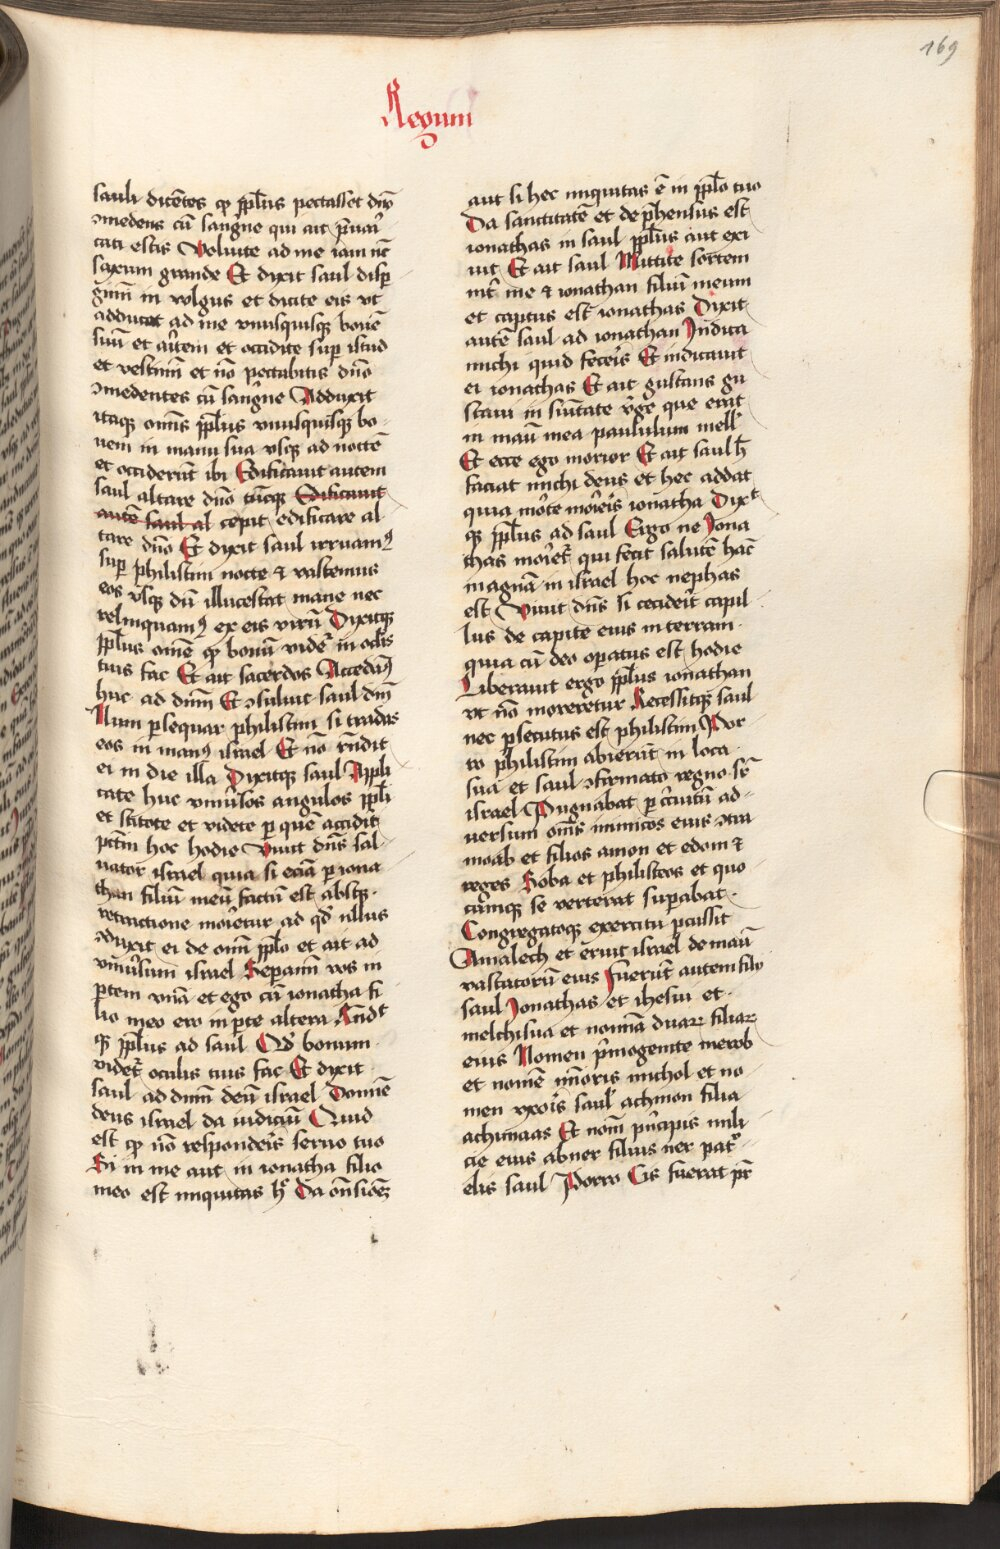 169
Regum
sauli dicētes qꝫ ppl̄us peccasset dn̄o
ꝯmedens cū sangīne qui ait p̄uari
cati estis Voluite ad me iam nūc
saxum grande Et dixit saul disp̄
gimī in vulgus et dicite eis vt
adducat ad me vnusquisqꝫ bouē
suū et aῑtem et occidite sup̄ istud
et vescimī et nō peccabitis dn̄o
ꝯmedentes cū sangīne Adduxit
itaqꝫ omīs ppl̄us vnusquisqꝫ bo
uem in manu sua vsqꝫ ad noctē
et occiderūt ibi Edificauit autem
saul altare dn̄o tūcqꝫ Edificauit
autē saul al cepit edificare al
tare dn̄o Et dixit saul irruamꝰ
sup̄ philistim nocte et vastemus
eos vsqꝫ dū illucescat mane nec
relinquamꝰ ex eis virū Dixitqꝫ
ppl̄us omē qꝫ bonū videt̄ in oclis
tuis fac Et ait sacerdos Accedamꝰ
huc ad dn̄m Et ꝯsuluit saul dn̄m
Num ꝑsequar philistim si trades
eos in manꝰ israel Et nō rn̄dit
ei in die illa Dixitqꝫ saul Appli
cate huc vniūsos angulos ppl̄i
et scitote et videte ꝑ quē accidit
pctm̄ hoc hodie Viuit dn̄s sal
uator israel quia si eciā ꝑ iona
than filiū meū factū est absqꝫ
retractione moriētur ad qd̄ nullus
ꝯduxit ei de omī ppl̄o et ait ad
vniūsum israel Sepamī vos in
ꝑtem vnā et ego cū ionatha fi
lio meo ero in ꝑte altera Rn̄dit
qꝫ ppl̄us ad saul Qd̄ bonum
videt̄ oculis tuis fac Et dixit
saul ad dn̄m deū israel Domīe
deus israel da iudiciū Quid
est qꝫ nō respondeis seruo tuo
Si in me aut in ionatha filio
meo est iniquitas hꝰ Da on̄sionē
aut si hec iniquitas ē in ppl̄o tuo
Da sanctitatē et dep̄hensus est
ionathas in saul ppl̄us aut exi
uit Et ait saul Mittite sortem
int̄ me et ionathan filiū meum
et captus est ionathas Dixit
autē saul ad ionathan Indica
michi quid feceīs Et indicauit
ei ionathas Et ait gustans gu
staui in sūitate v̄ge que erat
in manū mea paululum mell
Et ecce ego morior Et ait saul h̄
faciat michi deus et hec addat
quia morte morieīs ionatha Dixᵗ
qꝫ ppl̄us ad saul Ergo ne Iona
thas moriet̄ qui fecit salutē hāc
magnā in israel hoc nephas
est Viuit dn̄s si cecideīt capil
lus de capite eius in terram
quia cū deo opatus est hodie
Liberauit ergo ppl̄us ionathan
vt nō moreretur Recessitqꝫ saul
nec ꝑsecutus est philistim Por
ro philistim abierūt in loca
sua et saul ꝯfirmato regno sr̄
israel Pugnabat ꝑ circuitū ad
uersum omīs inimicos eius ꝯtra
moab et filios amon et edom et
reges Soba et philisteos et quo
cūmqꝫ se verterat supabat
Congregatoqꝫ exercitu ꝑcussit
Amalech et eruit israel de manū
vastatorū eius Fuerūt autem filij
saul Ionathas et ihesui et
melchisua et nomīa duarꝝ filiarꝝ
eius Nomen p̄mogenite merob
et nomē minōris michol et no
men vxoīs saul achinon filia
achimaas Et nomē p̄ncipis mili
cie eius abner filius ner pat
elis saul Porro Cis fuerat pr̄